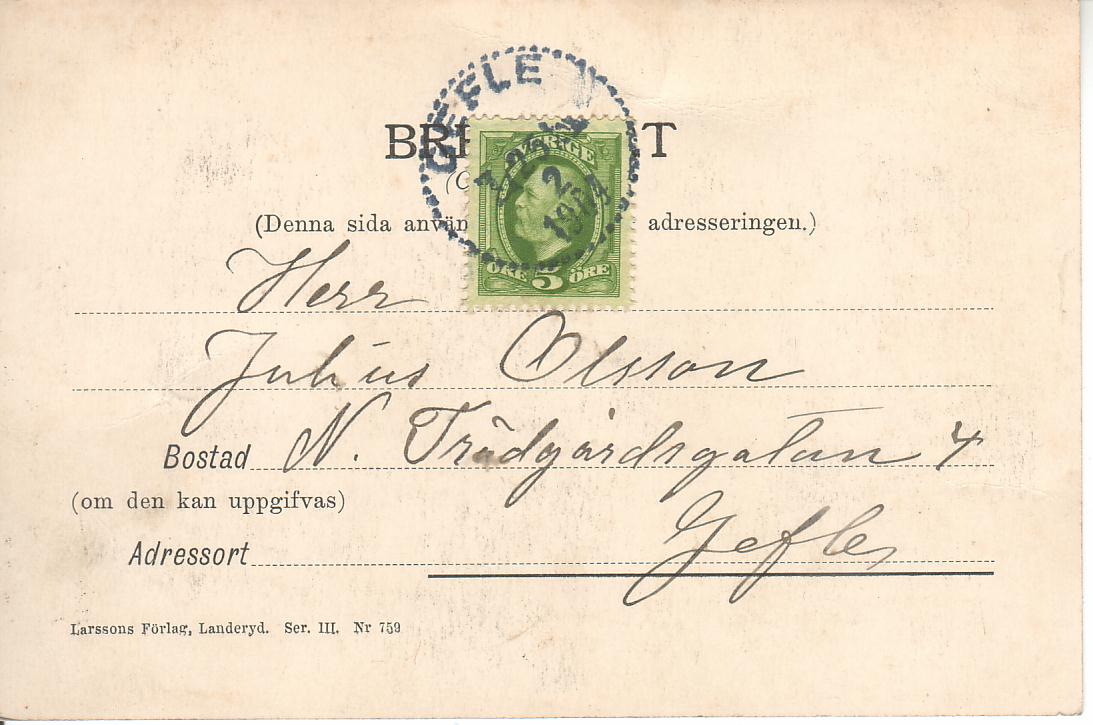 GEFLE
BRE T
SVERIGE
2
(Denna sida använ adresseringen.)
ÖRE 5 ÖRE
Herr
Julius Olsson
Bostad N. Trädgårdsgatan 4
(om den kan uppgifvas)
Adressort Gefle,
Larssons Förlag, Landeryd. Ser. III. Nr 759